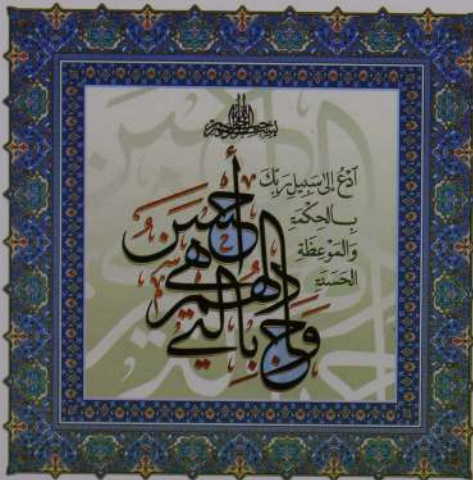 بسم الله الرحمن الرحيم
ٱدْعُ إِلَىٰ سَبِيلِ رَبِّكَ
بِالْحِكْمَةِ
وَالْمَوْعِظَةِ
الْحَسَنَةِ
وَجَادِلْهُم بِالَّتِي هِيَ أَحْسَنُ